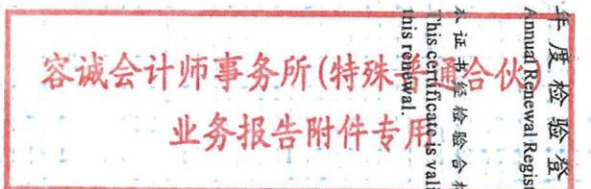 容诚会计师事务所(特殊普通合伙)
业务报告附件专用
年度检验登
Annual Renewal Regist
本证书经检验合格
This certificate is vali
this renewal.